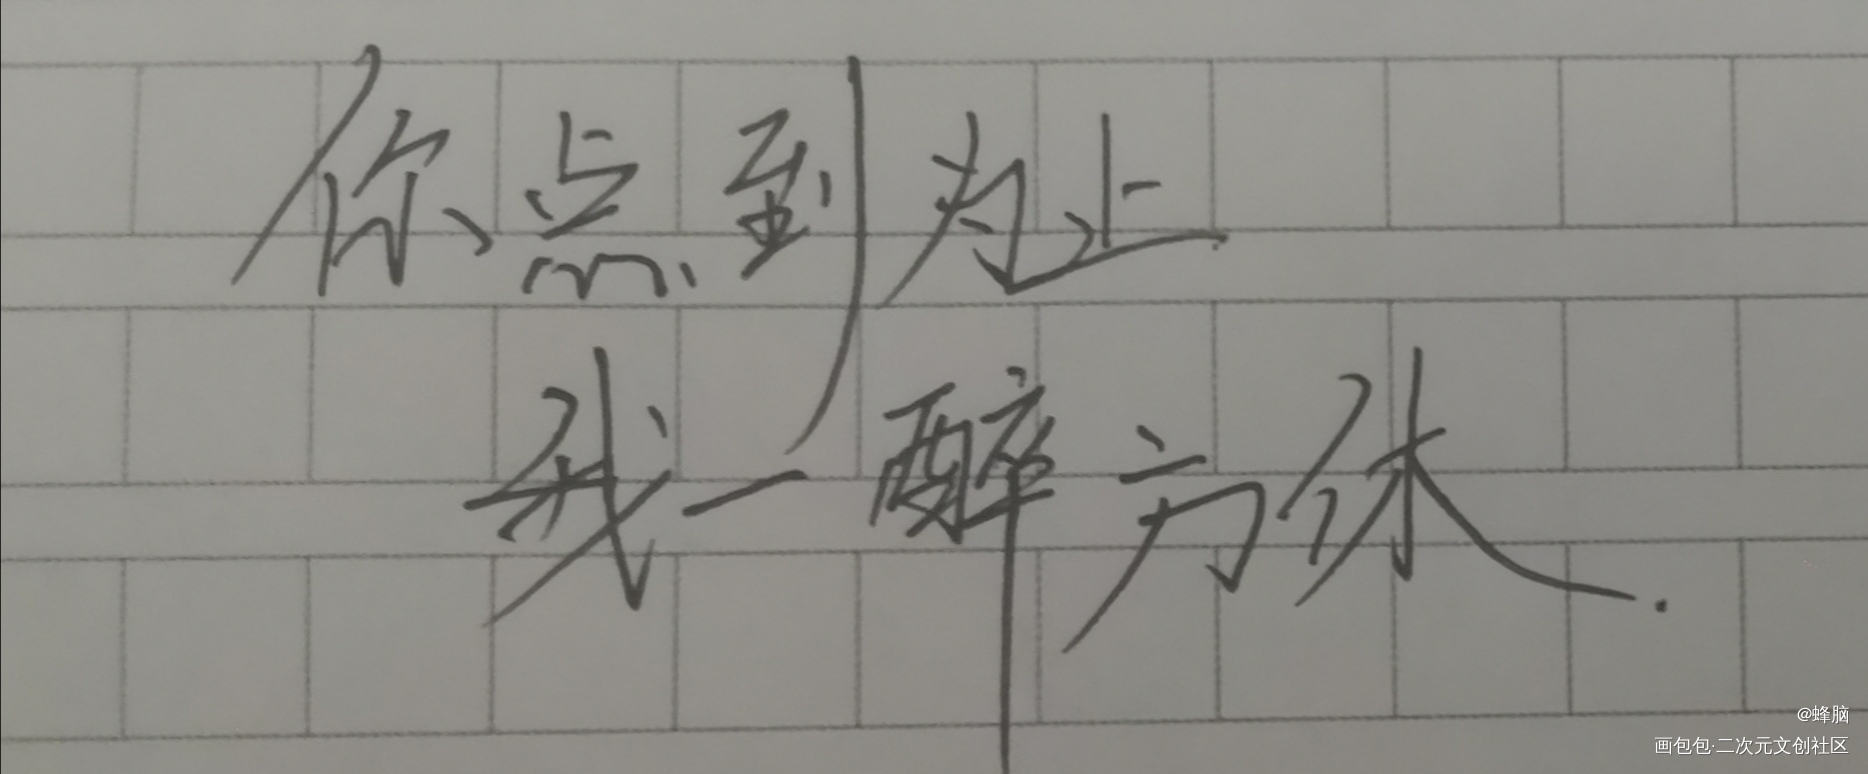 你点到为止
我一醉方休.
@蜂脑
画包包·二次元文创社区